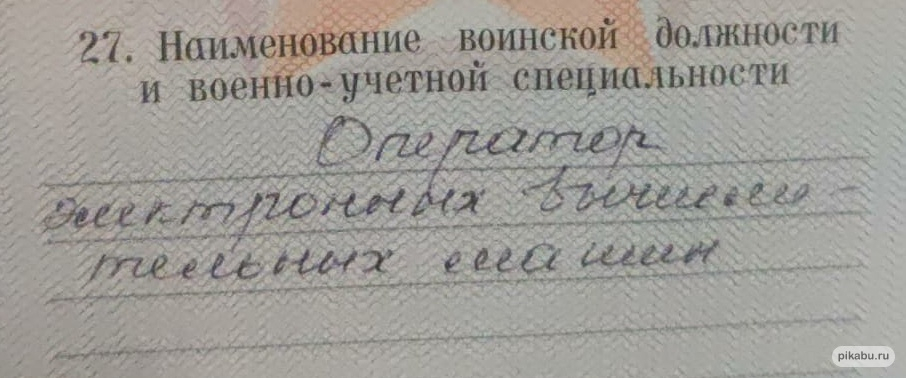 27. Наименование воинской должности
и военно-учетной специальности
Оператор
электронных вычисли-
тельных машин
pikabu.ru